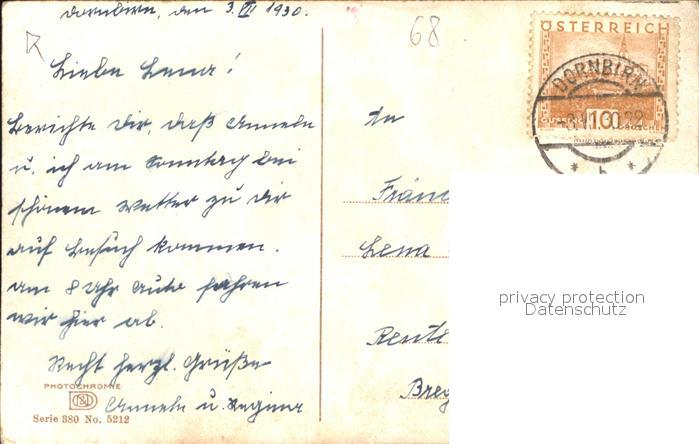 Dornbirn, den 3. VII 1930.
68
Liebe Lena!
Berichte Dir, daß Anneln
u. ich am Sonntag bei
schönem Wetter zu Dir
auf Besuch kommen.
Am 8 Uhr Auto fahren
wir hier ab.
Recht herzl. Grüße
Anneln u. Regina
PHOTOCHROMIE
Serie 380 No. 5212
ÖSTERREICH
DORNBIRN
An
Lena
privacy protection
Datenschutz